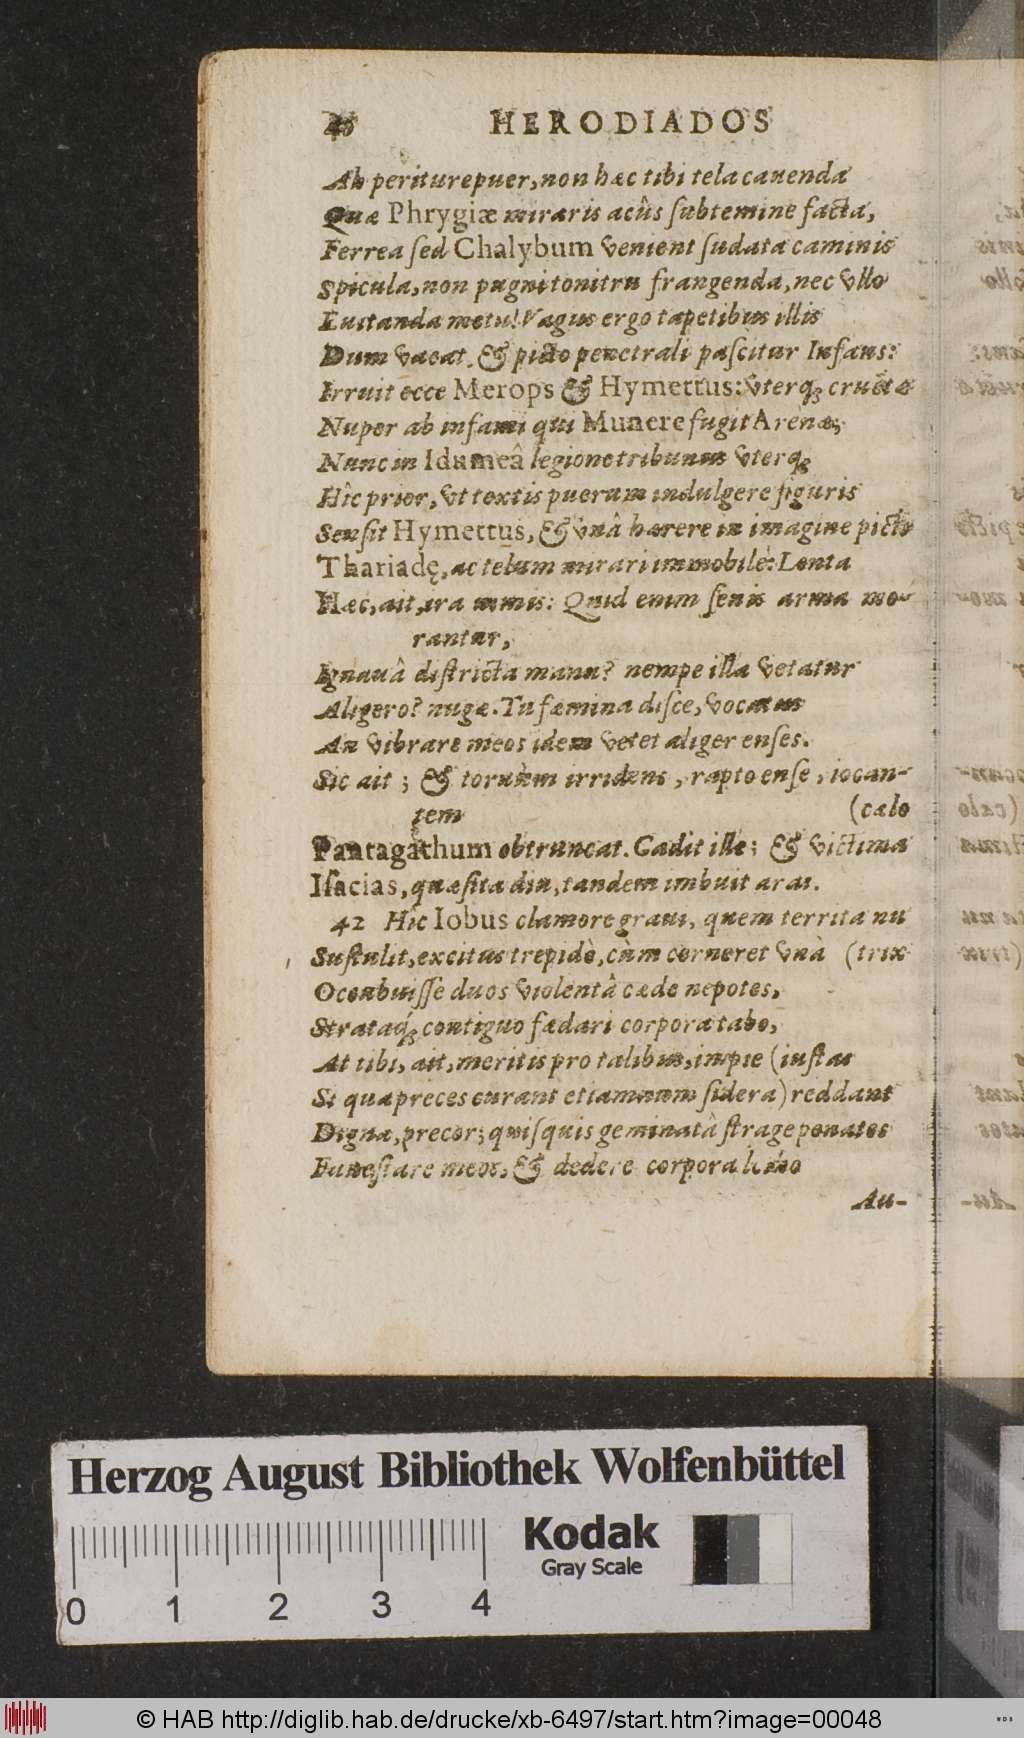 46 HERODIADOS
Ah periture puer, non hæc tibi tela cauenda
Quæ Phrygiæ miraris acûs subtemine facta,
Ferrea sed Chalybum venient sudata caminis
Spicula, non pugni tonitru frangenda, nec vllo
Euitanda motu! Vagus ergo tapetibus illis
Dum vacat, & picto penetrali pascitur Infans:
Irruit ecce Merops & Hymettus: vterq; cruētæ
Nuper ab infami qui Munere fugit Arenæ;
Nunc in Idumeâ legione tribunus vterq;
Hîc prior, vt textis puerum indulgere figuris
Sensit Hymettus, & vnâ hærere in imagine picto
Thariadę, ac telum mirari immobilè: Lenta
Hæc, ait, ira nimis: Quid enim senis arma mo-
rantur,
Ignauâ districta manu? nempe illa vetatur
Aligero? nugæ. Tu fæmina disce, vocatus
An vibrare meos idem vetet aliger enses.
Sic ait; & toruùm irridens, rapto ense, iocan-
tem (calo
Pantagathum obtruncat. Cadit ille; & victima
Isacias, quæsita diu, tandem imbuit aras.
42 Hîc Iobus clamore graui, quem territa nu
Sustulit, excitus trepidè, cùm cerneret vnà (trix
Occubuisse duos violentâ cæde nepotes,
Strataq; contiguo fædari corpora tabo,
At tibi, ait, meritis pro talibus, impie (iustas
Si qua preces curant etiamnum sidera) reddant
Digna, precor; quisquis geminatâ strage penates
Funestare meos, & dedere corpora limo
Au-
Herzog August Bibliothek Wolfenbüttel
Kodak
Gray Scale
0 1 2 3 4
© HAB http://diglib.hab.de/drucke/xb-6497/start.htm?image=00048